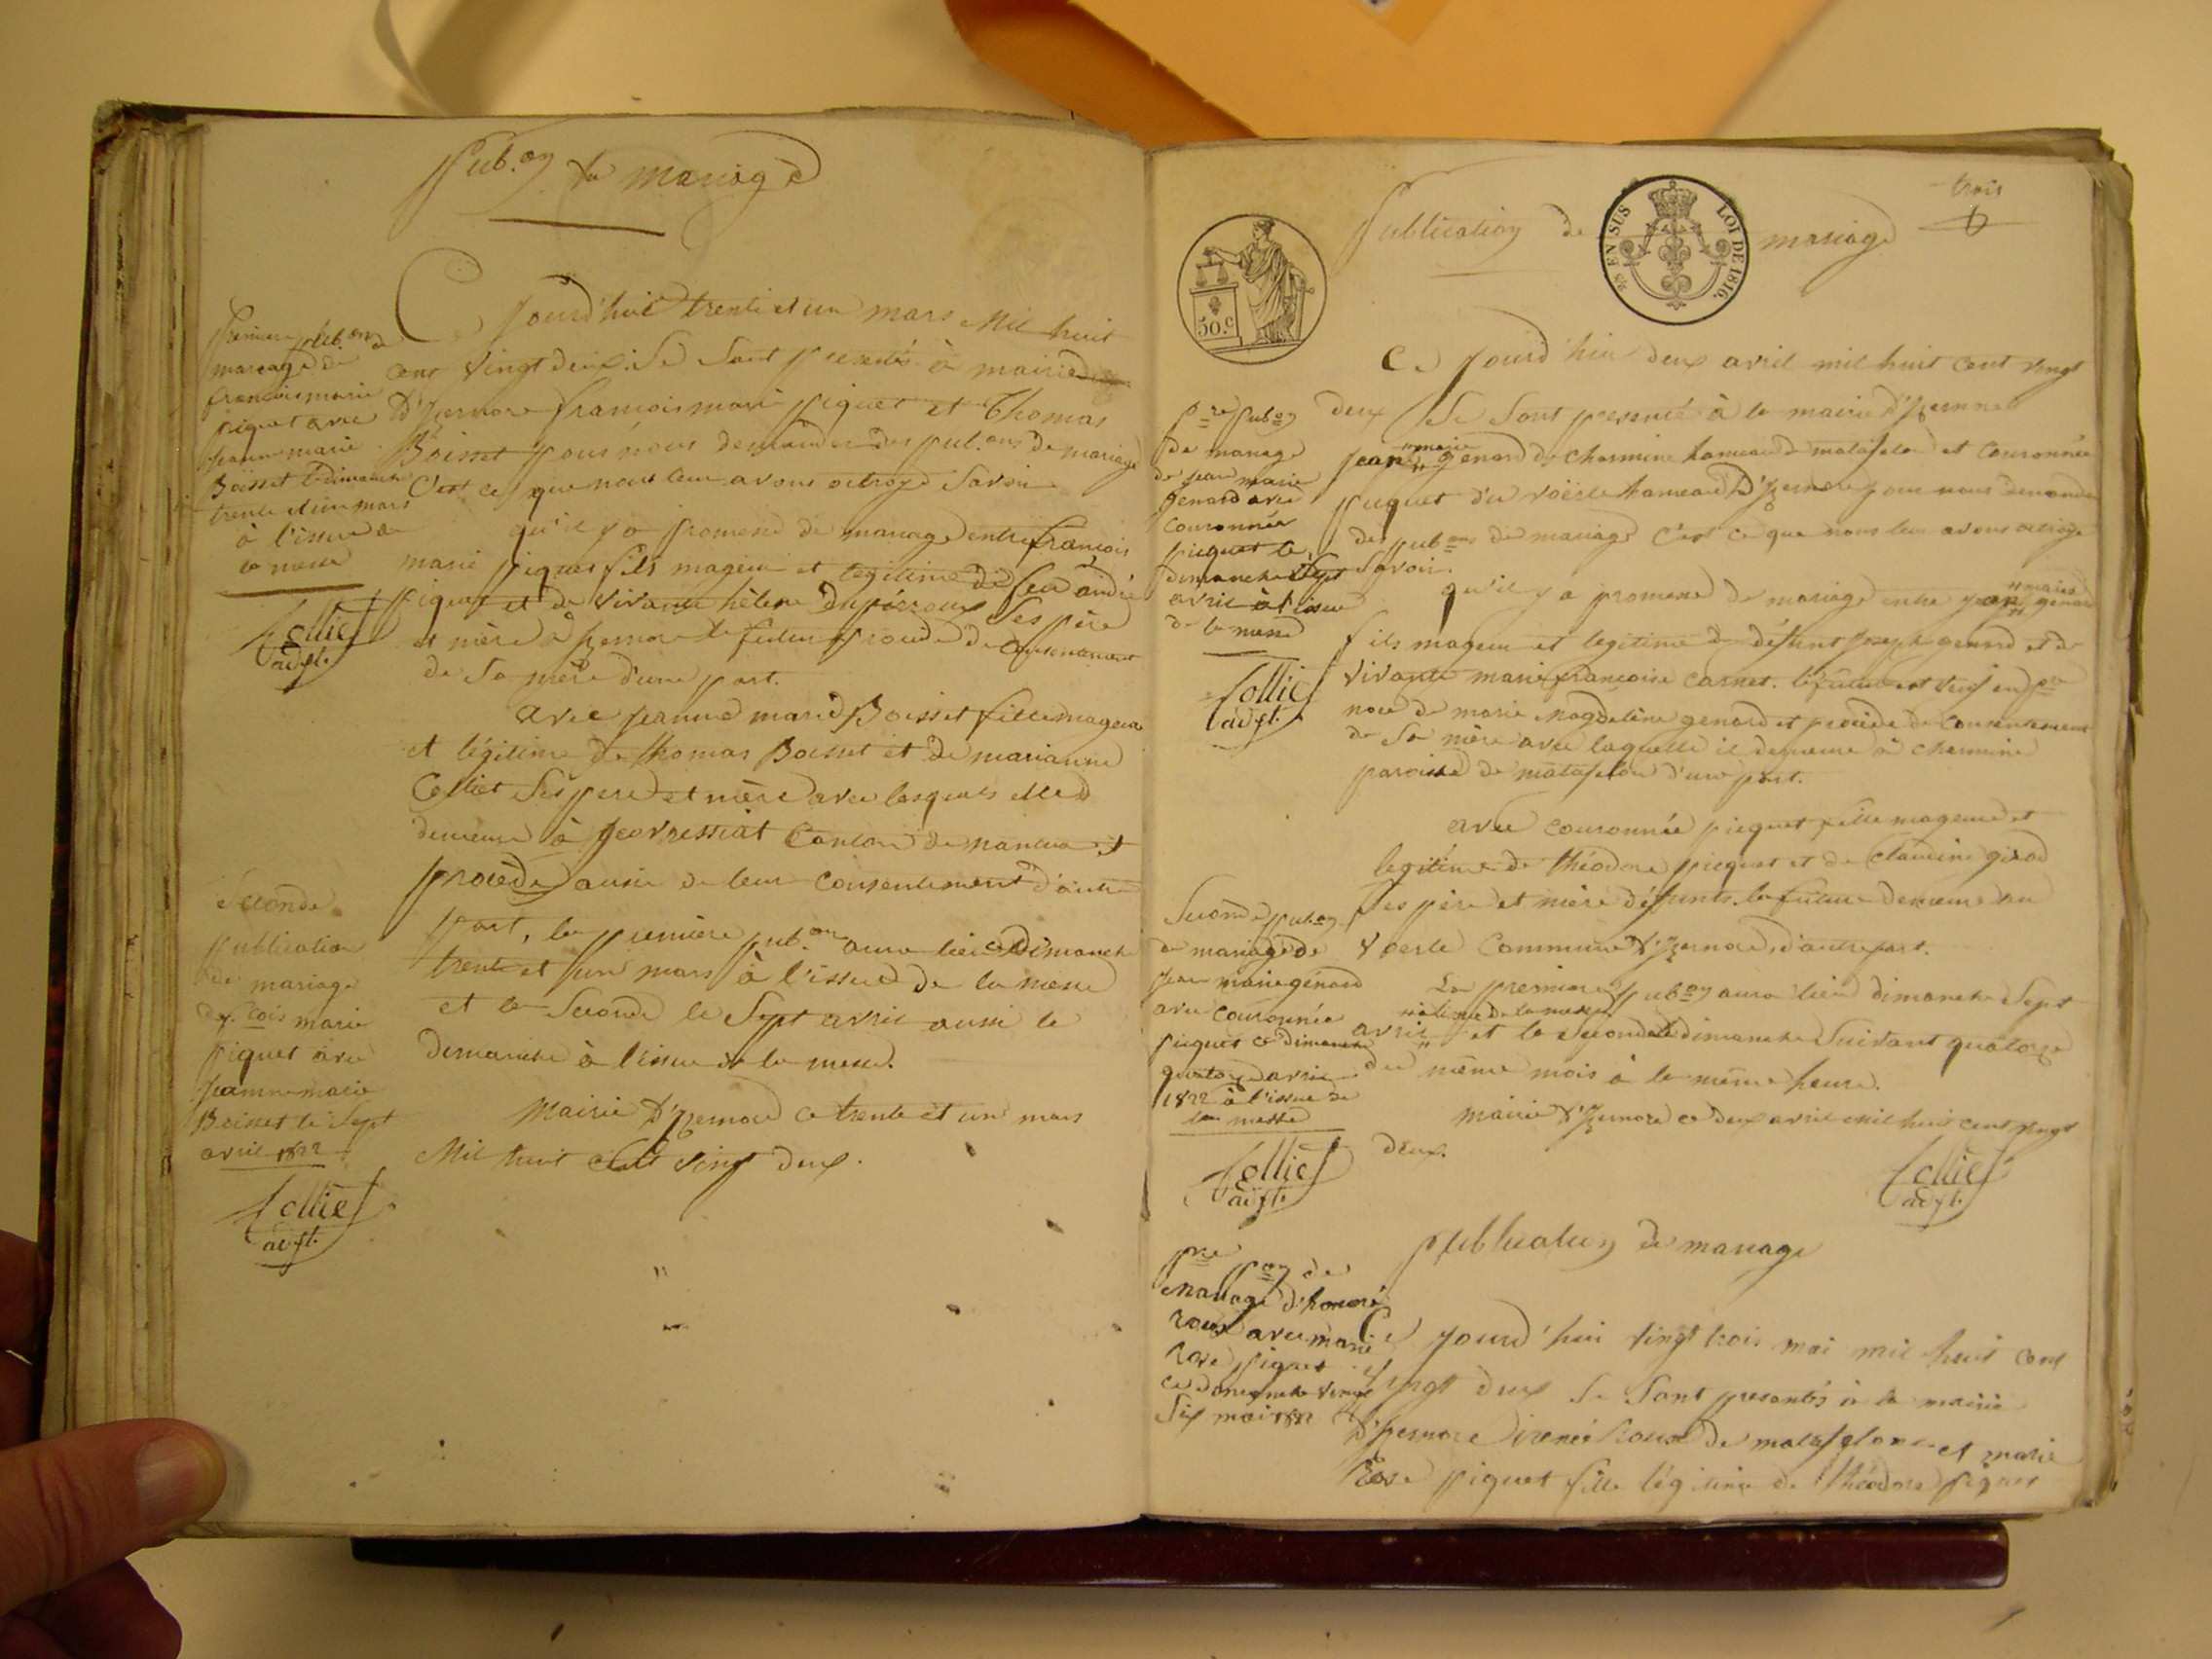 Pub.on de mariage
Ce Jourd'hui trente et un mars Mil huit
cent vingt deux. Se Sont presentés à mairie
d'Izernore francois marie piquet et Thomas
Boisset pour nous demander des pub.ons de mariage
C'est ce que nous leur avons octroyé Savoir
qu'il y a promesse de mariage entre françois
marie piquet fils mageur et legitime de feu andré
piquet et de vivante hèlene Ses père
et mère à Izernore le futur procede de Consentement
de Sa mère d'une part.
avec jeanne marie Boisset fille mageure
et légitime de thomas Boisset et de marianne
Colliet Ses pere et mère avec lesquels elle
demeure à geovressiat Canton de nantua et
procède aussi de leur consentement d'autre
part, la première pub.on aura lieu ce Dimanche
trente et un mars à l'issue de la messe
et la Seconde le Sept avril aussi le
dimanche à l'issue de la messe.
Mairie d'Izernore ce trente et un mars
Mil huit cent vingt deux.
Premiere pub.on de
mariage de
francois marie
piquet avec
jeanne marie
Boisset ce dimanche
trente et un mars
à l'issue de
la messe
Collet
adjt.
Seconde
publication
de mariage
de f.cois marie
piquet avec
jeanne marie
Boisset le Sept
avril 1822
Collet
adjt.
trois
6
Publication de mariage
50.c
EN SUS
LOI DE 1816.
Ce Jourd'hui deux avril mil huit cent vingt
deux Se Sont presenté à la mairie d'Izernore
jean "marie" genard de charmine hameau de matafelon et Couronnée
piquet du voërle hameau d'Izernore pour nous demander
des pub.ons de mariage C'est ce que nous leur avons octroyé
Savoir.
qu'il y a promesse de mariage entre jean "marie" genard
fils mageur et legitime de défunt joseph genard et de
vivante marie francoise Carnet. le futur est veuf en p.re
noce de marie Magdeleine genard et procède de Consentement
de Sa mère avec laquelle il demeure à charmine
paroisse de matafelon d'une part.
avec couronnée piquet fille mageure et
legitime de théodore piquet et de Claudine girod
Ses père et mère défunts. la future demeure au
Voerle Commune d'Izernore, d'autre part.
La premiere pub.on aura lieu dimanche Sept
"à l'issue de la messe"
avril et la Seconde le dimanche Suivant quatorze
du même mois à la même heure.
mairie d'Izernore ce deux avril mil huit cent vingt
deux.
Collet
adjt.
p.re pub.on
de mariage
de jean marie
genard avec
Couronnée
piquet le
dimanche Sept
avril à l'issue
de la messe
Collet
adjt.
Seconde pub.on
de mariage de
jean marie génard
avec Couronnée
piquet ce dimanche
quatorze avril
1822 à l'issue de
la messe
Collet
adjt.
publication de mariage
Ce jourd'hui vingt trois mai mil huit cent
vingt deux Se Sont presentés à la mairie
d'Izernore irenée Roux de matafelon et marie
Rose piquet fille légitime de théodore piquet
p.re p.on de
mariage d'
roux avec marie
Rose piquet
ce dimanche vingt
Six mai 1822